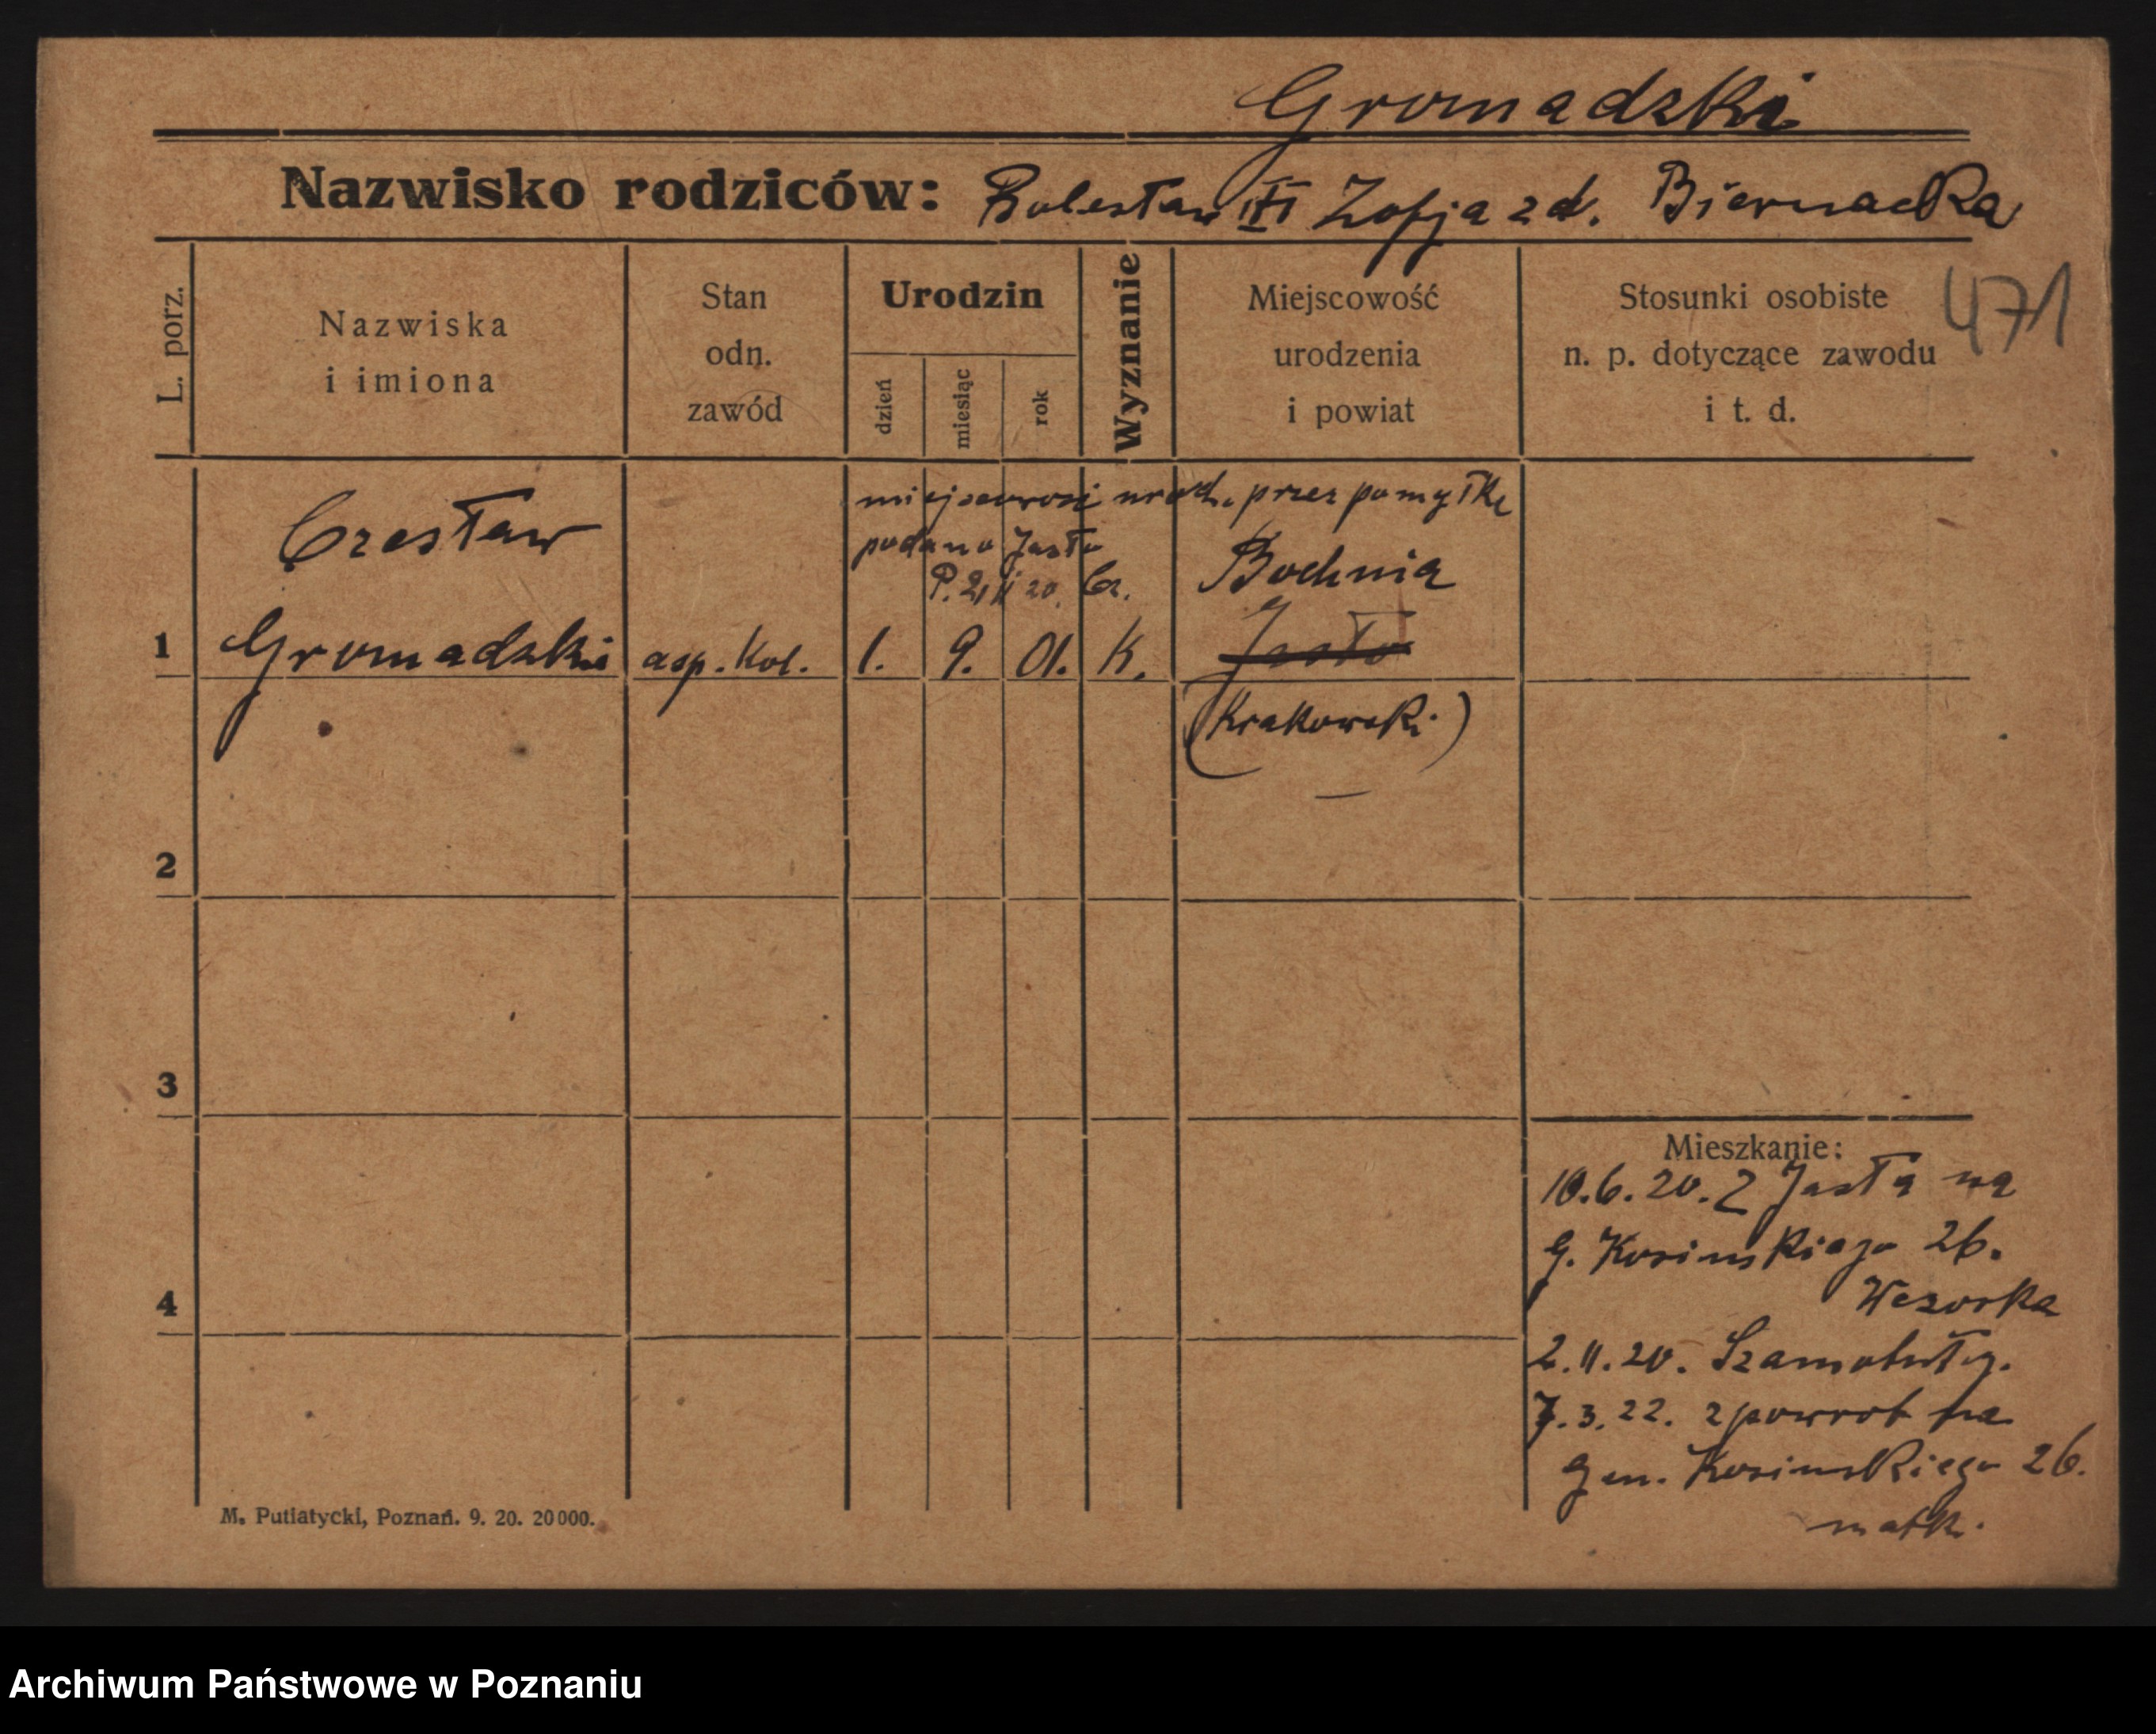 Gromadzki
Nazwisko rodziców: Bolesław i Zofja z d. Biernacka
471
L. porz.
Nazwiska
i imiona
Stan
odn.
zawód
Urodzin
dzień
miesiąc
rok
Wyznanie
Miejscowość
urodzenia
i powiat
Stosunki osobiste
n. p. dotyczące zawodu
i t. d.
miejscowość urodz. przez pomyłkę
podano Jasło
P. 2/11 20.
Czesław
Bochnia
1 Gromadzki asp. kol. 1. 9. 01. K. Jasło
(Krakowski)
2
3
4
Mieszkanie:
10.6.20. Z Jasła na
G. Kosinskiego 26.
2.11.20. Szamotuły.
7.3.22. zpowrot na
Gen. Kosinskiego 26.
matki
M. Putiatycki, Poznań. 9. 20. 20000.
Archiwum Państwowe w Poznaniu